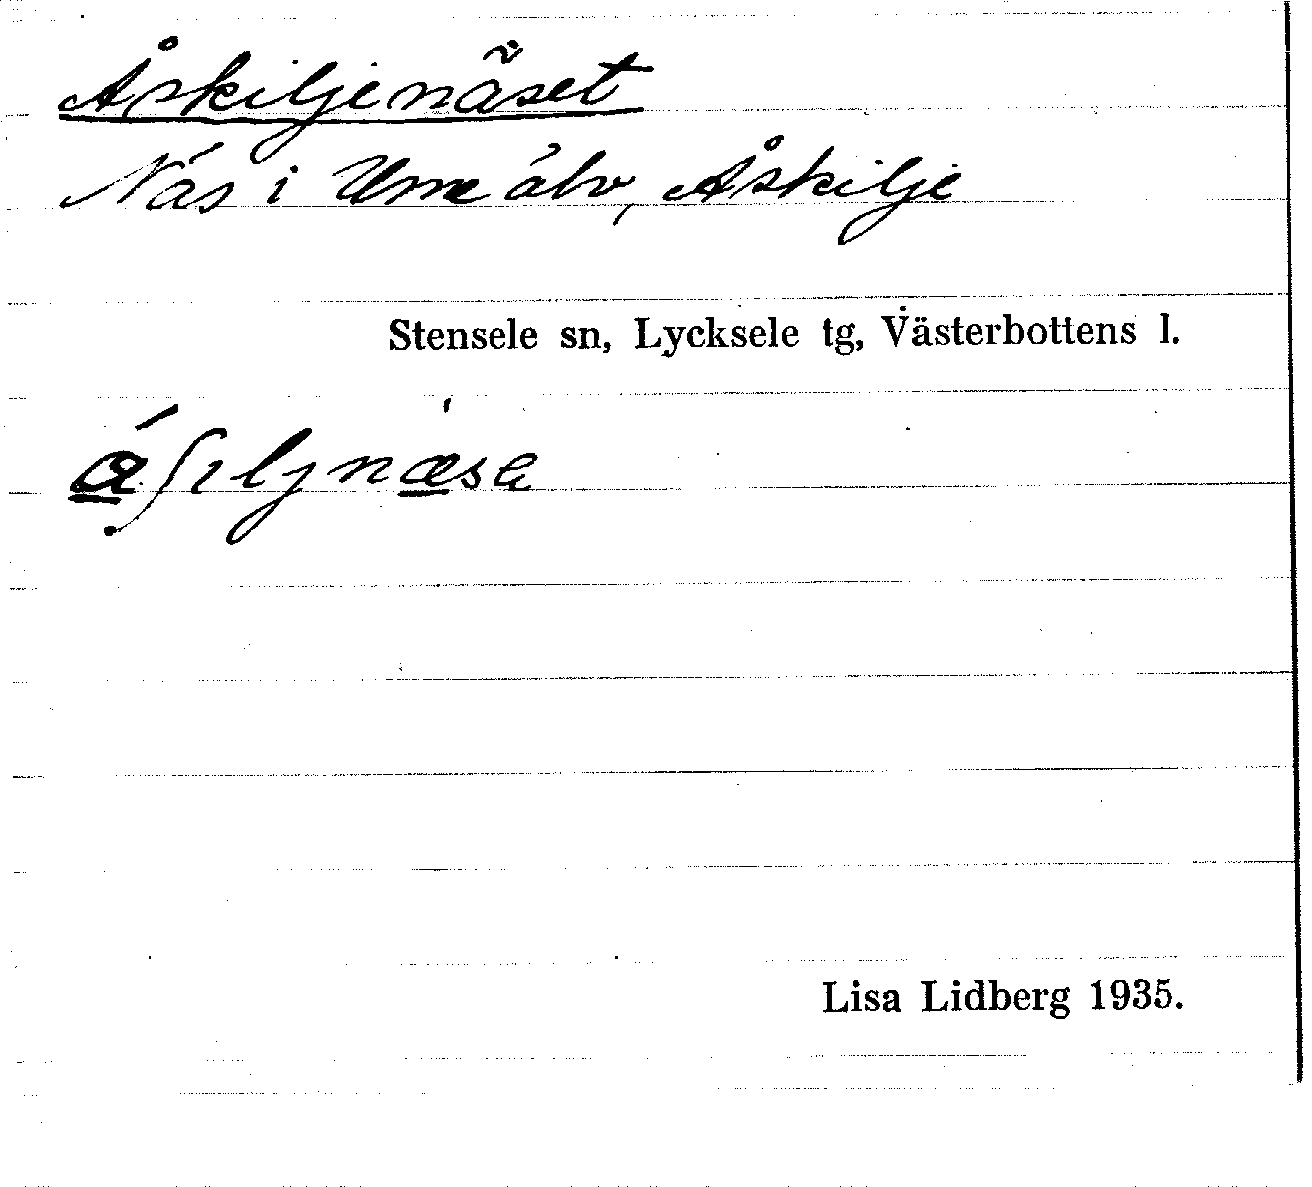 Åskiljenäset
Näs i Ume älv, Åskilje
Stensele sn, Lycksele tg, Västerbottens l.
á̲ʃɩljnæ̲̀sɐ
Lisa Lidberg 1935.